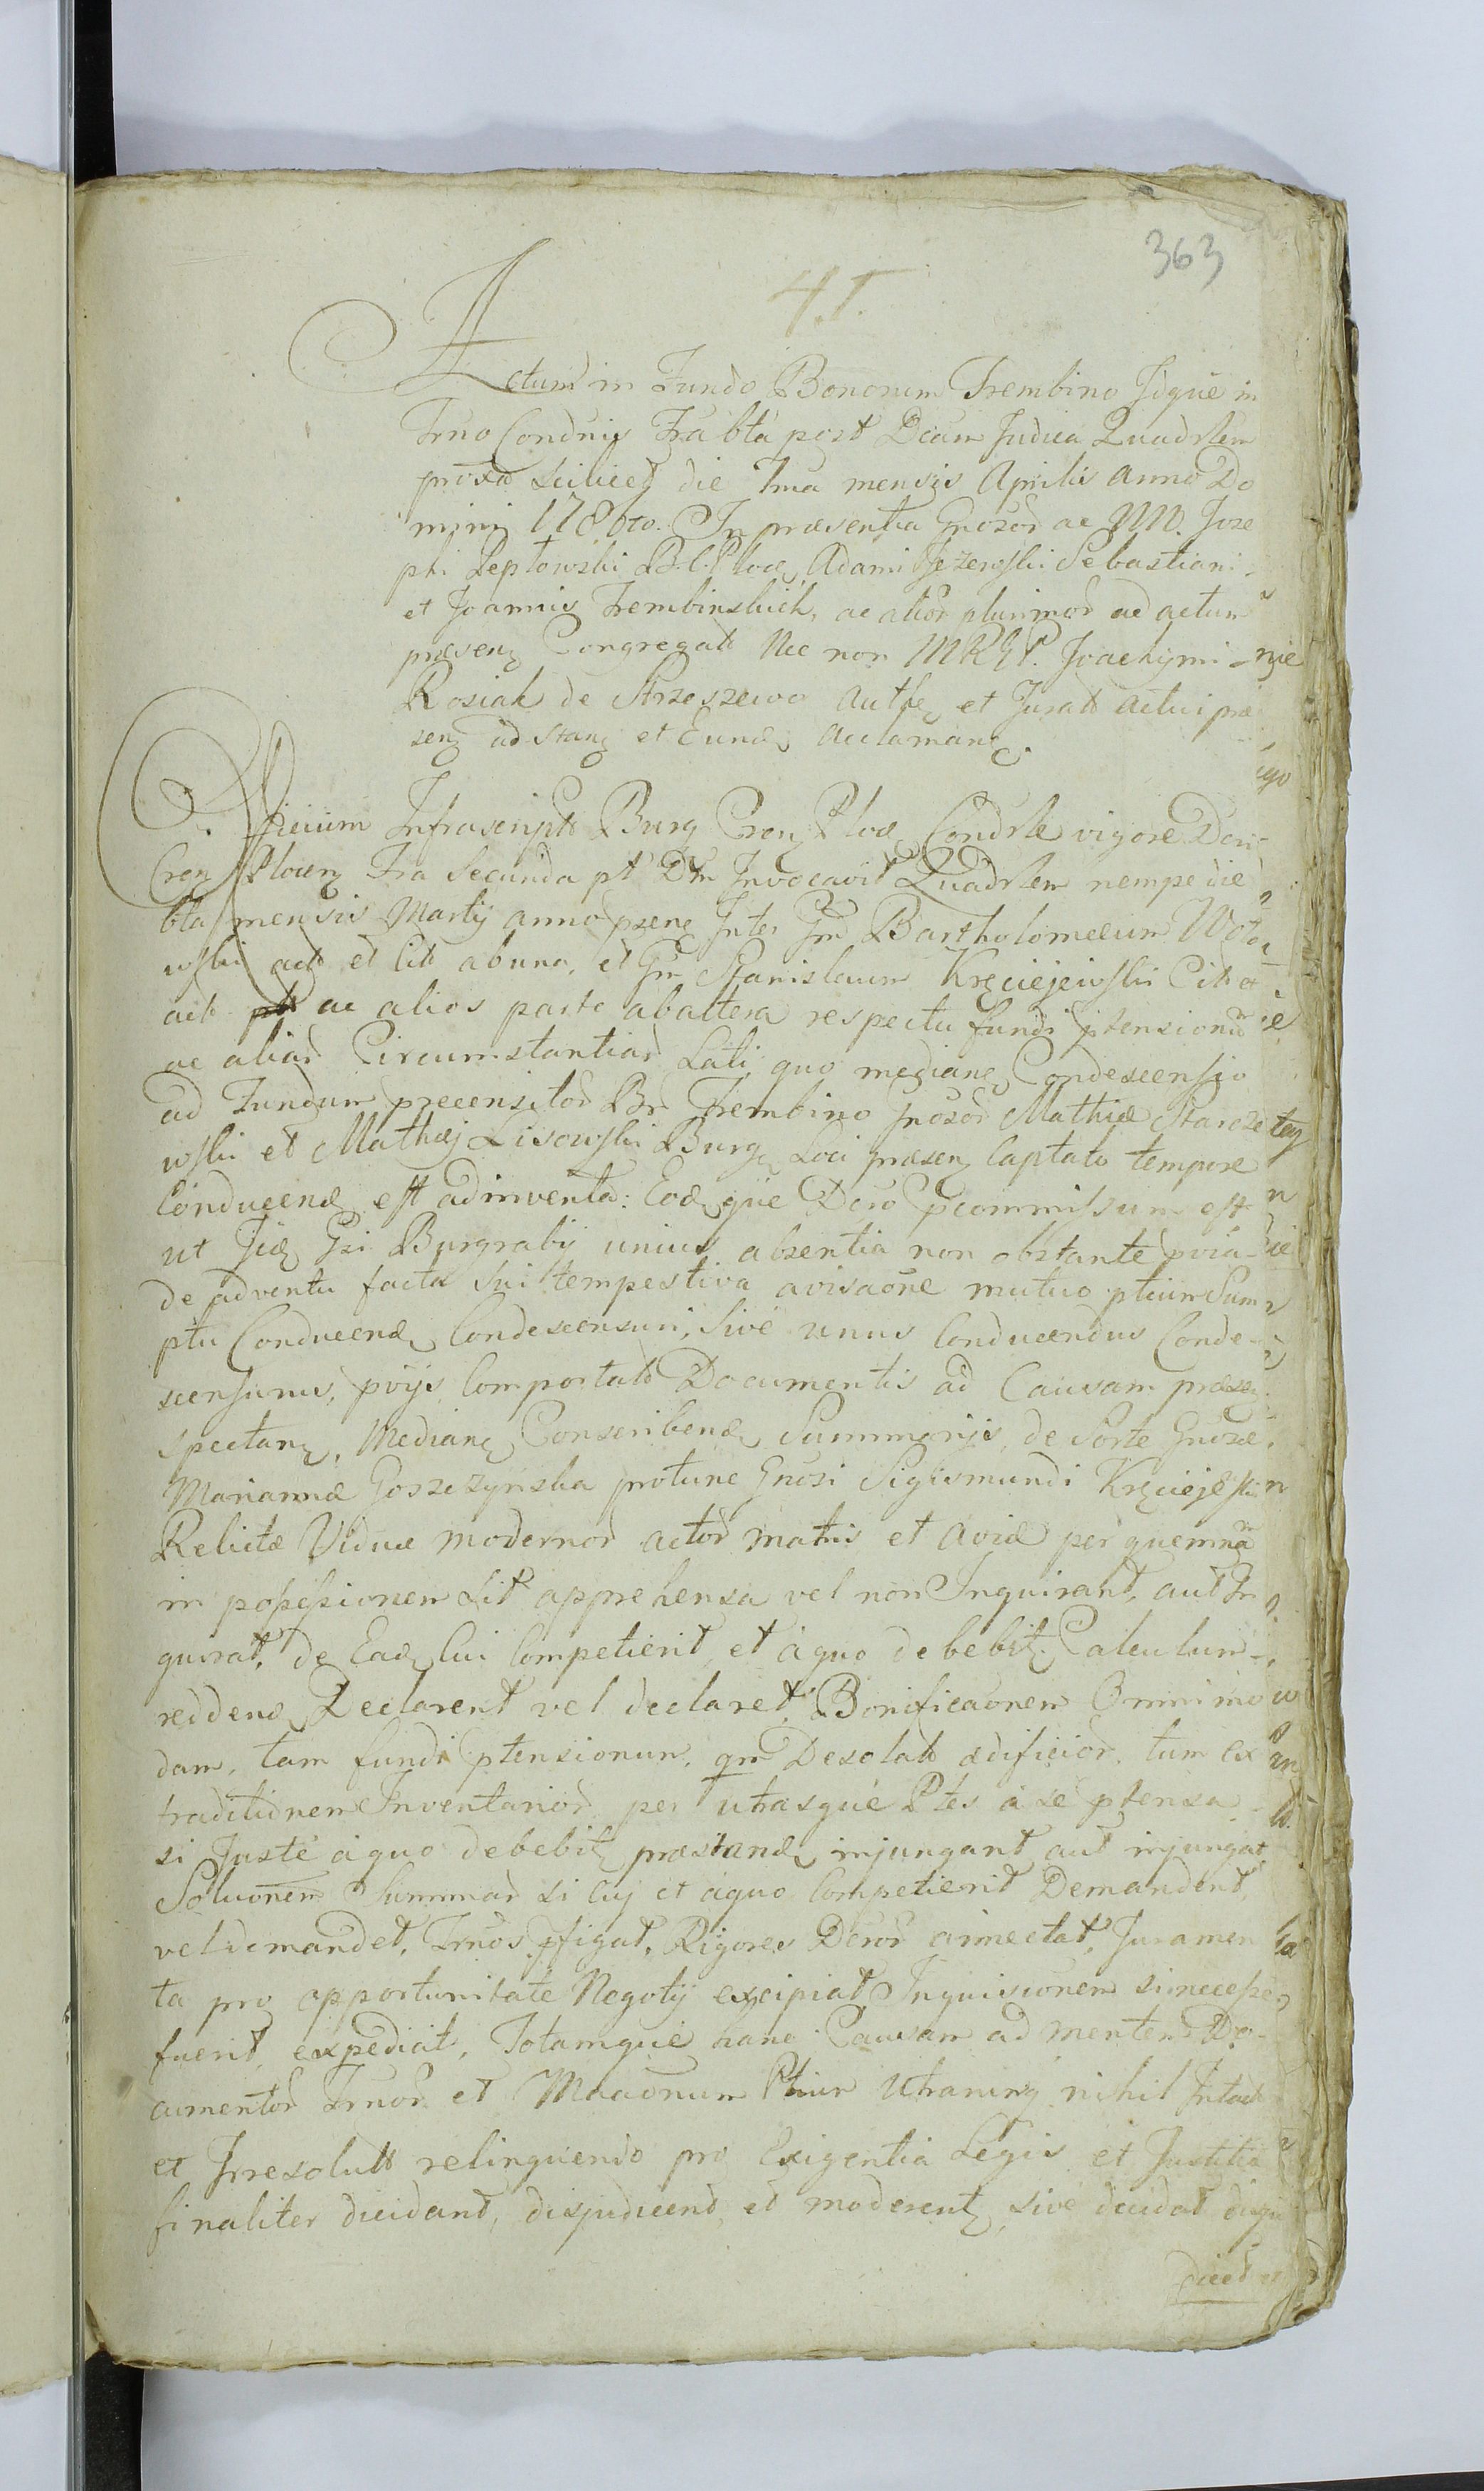 363
Actum in Fundo Bonorum Trembino Idque in
Trno Condnis Fra bta post Dcam Judica Quadrlem
proxa scilicet die 1ma mensis Aprilis anno Do
mini 1786to. In præsentia Gnosor ac MM. Joze
phi Leplowski B. C. Ploc, Adami Jezewski Sebastiani
et Joannis Trembinskich, ac alior plurimor ad actum
præsenz Congregatt Nec non MRGP. Joachymi
Rosiak de Strzeszewo Autſe et Juratt actui præ
senz adstanz et Eund acclamanz.
Officium Infrascriptt Burg Cren Ploc Condrle vigore Decri
Cren Plocen Fra Secunda pt Dm Invocavit Quadrlem nempe die
bta mensis Martij anno pzenz Inter Gm Bartholomeum Woto
wski actt et citt abuna, et Gm Stanislaum Kręciejewski Citt et
actt ac alios parte abaltera respectu fundi ptensionũ
ac aliar Circumstantiar Lati quo medianz Condescensio
ad Fundum præcensitor Br Trembino Gnosor Mathiæ Starcze
wski et Mathæj Lisowski Burg Loci præsenz Captato tempore
Conducend est adinventa: Eodque Dcro pcommissum est
ut Jid Gsi Burgrabij unius absentia non obstante pvia
de adventu facta sui tempestiva avisaõne mutuo ptium Sum
ptu Conducend Condescensuri, sive unus Conducendus Conde-
scensurus, pvijs Comportatt Documentis ad Causam præsenz
spectanz, Medianz Conscribend Summarijs, de Sorte Gnosæ
Mariannæ Goszczynska protunc Gnosi Sigismundi Kręciejewski
Relictæ Viduæ modernor actor matris et aviæ per quemnam
in poßeßionem sit apprehensa vel non Inquirant, aut In
quirat, de Ead Cui Competierit, et aquo debebit Calculum
reddend Declarent vel declaret, Bonificaõnem Omnimo
dam, tam fundi ptensionum, qm Desolatt ædificior, tum ex
traditionem Inventarior per utrasque Ptes a se ptensa
si Juste aquo debebit præstand injungant aut injungat
Soluõnem Summar si Cuj et aquo Competierit Demandent,
vel demandet, Trnos pfigat, Rigores Dcror annectat, Juramen
ta pro opportunitate Negotij excipiat Inquisionem si neceße
fuerit, expediat, Totamque hanc Causam ad mentem Do-
cumentor Trnor et Maaõnum Ptium Utrarumq nihil Intactt
et Irresolutt relinquendo pro Exigentia Legis et Justitiæ
finaliter dicidant, disjudicent, et moderent, sive decidat disju
dicet et